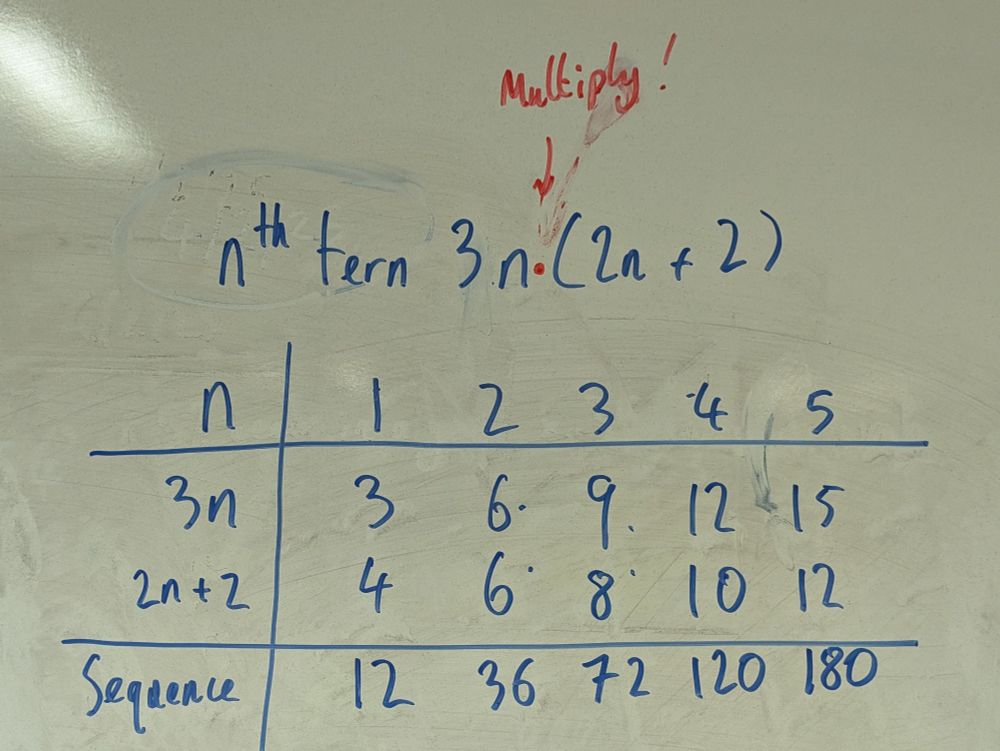 Multiply!
nth tern 3n·(2n+2)
n 1 2 3 4 5
3n 3 6 9 12 15
2n+2 4 6 8 10 12
Sequence 12 36 72 120 180